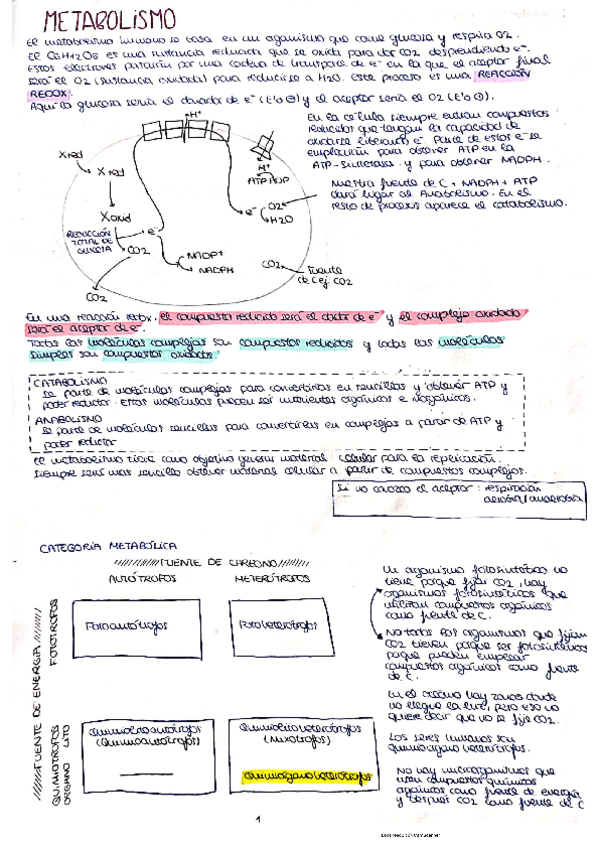 METABOLISMO
El metabolismo humano se basa en un organismo que come glucosa y respira O2.
El C6H12O6 es una sustancia reducida que se oxida para dar CO2 desprendiendo e-.
Estos electrones pasarían por una cadena de transporte de e- en la que el aceptor final
será el O2 (sustancia oxidada) para reducirse a H2O. Este proceso es una REACCIÓN
REDOX.
Aquí la glucosa sería el donador de e- (E'o ⊖) y el aceptor sería el O2 (E'o ⊕).
En la célula siempre entran compuestos
reducidos que tengan la capacidad de
oxidarse liberando e-. Parte de estos e- se
emplearían para obtener ATP en la
ATP-sintetasa y para obtener NADPH.
Nuestra fuente de C + NADPH + ATP
dará lugar al Anabolismo. En el
resto de procesos aparece el catabolismo.
H+
Xred
Xred
Xoxid
H+
ATP ADP
e-
O2
H2O
REDUCCIÓN
TOTAL DE
GLUCOSA
e-
CO2
NADP+
NADPH
CO2
Fuente
de C ej CO2
CO2
En una reacción redox, el compuesto reducido será el dador de e- y el complejo oxidado
será el aceptor de e-.
Todas las moléculas complejas son compuestos reducidos y todas las moléculas
simples son compuestos oxidados.
CATABOLISMO
Se parte de moléculas complejas para convertirlas en sencillas y obtener ATP y
poder reductor. Estas moléculas pueden ser nutrientes orgánicos e inorgánicos.
ANABOLISMO
Se parte de moléculas sencillas para convertirlas en complejas a partir de ATP y
poder reductor
El metabolismo tiene como objetivo generar material celular para la replicación.
Siempre será más sencillo obtener material celular a partir de compuestos complejos.
Si no conozco el aceptor: respiración
aerobia/anaerobia
CATEGORÍA METABÓLICA
FUENTE DE CARBONO
AUTÓTROFOS HETERÓTROFOS
FUENTE DE ENERGÍA
FOTOTROFOS
QUIMIOTROFOS
ORGANO LITO
Fotoautótrofos
Fotoheterótrofos
Quimiolitoautótrofos
(Quimioautótrofos)
Quimiolitoheterótrofos
(Mixotrofos)
Quimiorganoheterótrofos
Un organismo fotosintético no
tiene porque fijar CO2, hay
organismos fotosintéticos que
utilizan compuestos orgánicos
como fuente de C.
No todos los organismos que fijan
CO2 tienen porque ser fotosintéticos
porque pueden emplear
compuestos orgánicos como fuente
de C.
En el océano hay zonas donde
no llega la luz, pero eso no
quiere decir que no se fije CO2.
Los seres humanos son
quimiorgano heterótrofos.
No hay microorganismos que
usen compuestos químicos
orgánicos como fuente de energía
y después CO2 como fuente de C
1